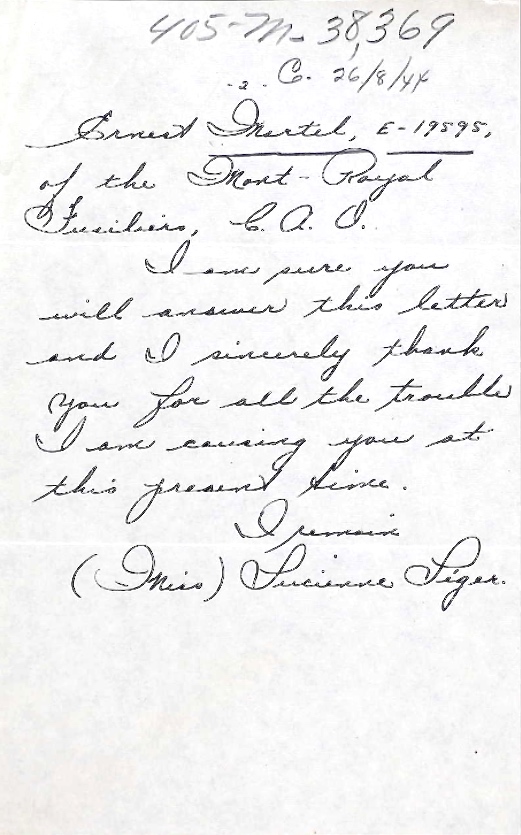 405-M-38,369
-2- C. 26/8/44
Ernest Martel, E-19595,
of the Mont-Royal
Fusiliers, C. A. O.
I am sure you
will answer this letter
and I sincerely thank
you for all the trouble
I am causing you at
this present time.
I remain
(Miss) Lucienne Leger.